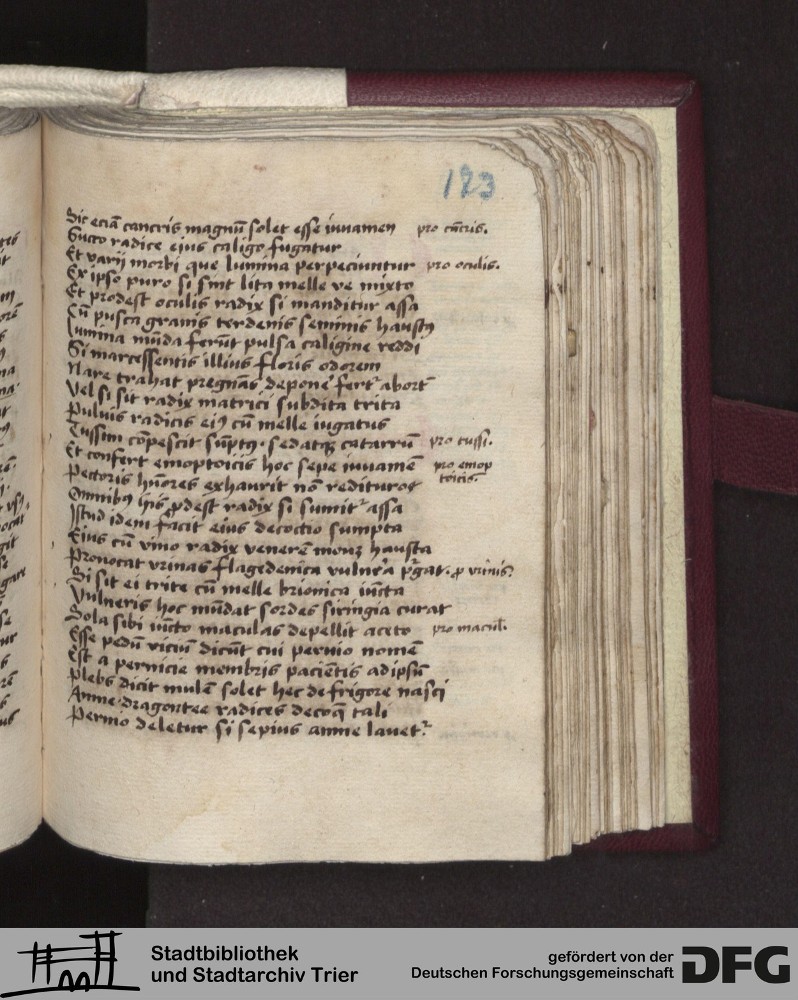 123
Sic eciā cancris magnū solet esse iuuamen pro cācris.
Succo radice eius caligo fugatur
Et varij morbi que lumina perpeciuntur pro oculis.
Ex ipso puro si sint lita melle ve mixto
Et prodest oculis radix si manditur assa
Cū pusca granis terdenis seminis haustꝰ
Lumina mūda ferūt pulsa caligine reddi
Si marcessentis illius floris odorem
Nare trahat pregnās depone' fert abort
Vel si sit radix matrici subdita trita
Puluis radicis eiꝰ cū melle iugatus
Tussim cōpescit sūptꝰ. sedatqȝ catarrū pro tussi.
Et confert emoptoicis hoc sepe iuuamē pro emop
toicis.
Pectoris hūores exhaurit nō redituros
Omnibꝰ hijs ꝓdest radix si sumit assa
Istud idem facit eius decoctio sumpta
Eius cū vino radix venerē mouȝ hausta
Prouocat vrinas flagedenica vulnera pgat. ꝓ vrinis.
Si sit ei trite cū melle brionica iūcta
Vulneris hoc mūdat sordes siringia curat
Sola sibi iūcto maculas depellit aceto pro macul.
Esse pedū viciū dicūt cui pernio nomē
Est a pernicie membris paciētis adipsū
Plebs dicit mulē solet hec de frigore nasci
Amne dragontee radices decoq̄ tali
Pernio deletur si sepius amne lauet.
Stadtbibliothek
und Stadtarchiv Trier
gefördert von der
Deutschen Forschungsgemeinschaft
DFG